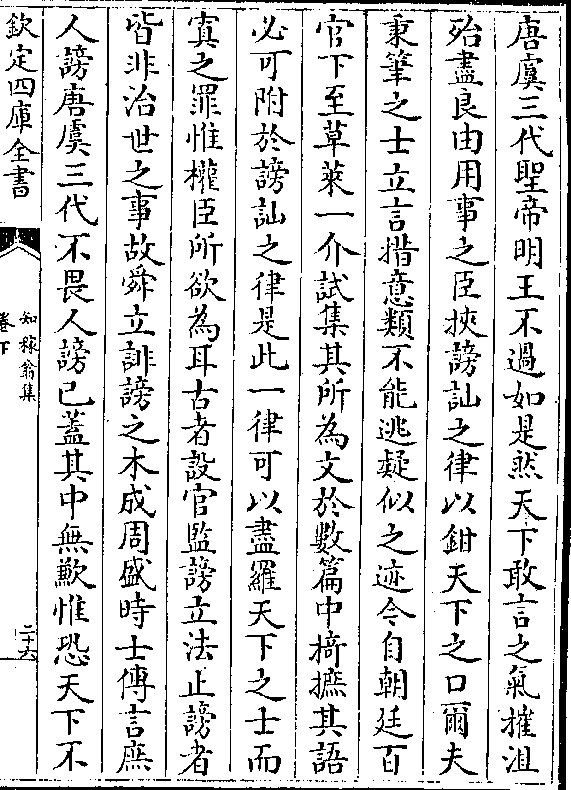 唐虞三代聖帝明王不過如是然天下敢言之氣摧沮
殆盡良由用事之臣挾謗訕之律以鉗天下之口爾夫
秉筆之士立言措意類不能逃疑似之迹令自朝廷百
官下至草萊一介試集其所為文於數篇中掎摭其語
必可附於謗訕之律是此一律可以盡羅天下之士而
寘之罪惟權臣所欲為耳古者設官監謗立法止謗者
皆非治世之事故舜立誹謗之木成周盛時士傳言庶
人謗唐虞三代不畏人謗已蓋其中無歉惟恐天下不
欽定四庫全書
知稼翁集
卷下
二十六